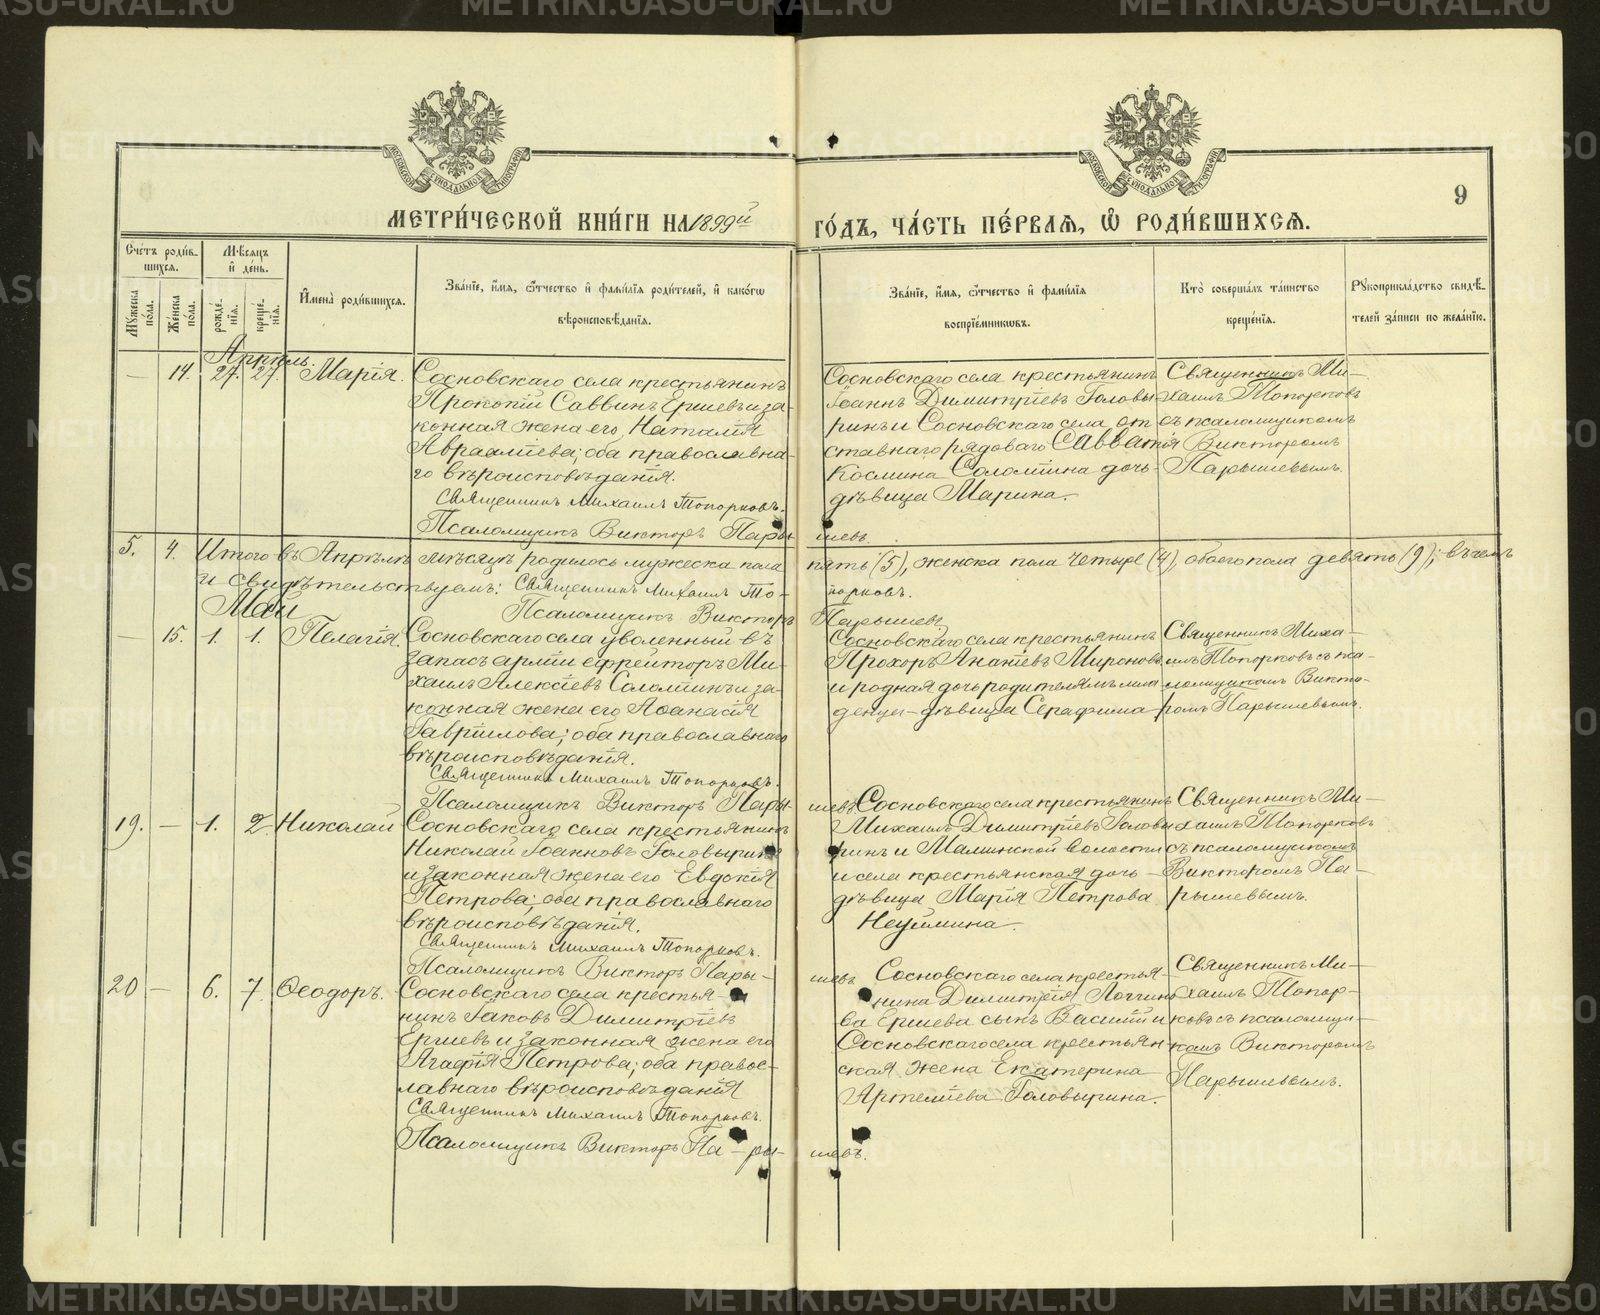 МЕТРИ́ЧЕСКОЙ КНИ́ГИ НА 1899й ГО́ДЪ, ЧА́СТЬ ПЕ́РВАѦ, Ѡ҆ РОДИ́ВШИХСѦ.
9
МОСКОВСКОЙ СѴНОДАЛЬНОЙ ТИПОГРАФІИ
МОСКОВСКОЙ СѴНОДАЛЬНОЙ ТИПОГРАФІИ
Сче́тъ роди́в-
шихсѧ.
Мꙋ́жеска по́ла.
Же́нска по́ла.
Мѣ́сѧцъ
и҆ де́нь.
рожде́-
нїѧ.
креще́-
нїѧ.
И҆мена̀ роди́вшихсѧ.
Зва́нїе, и҆́мѧ, ѻ҆́тчество и҆ фами́лїѧ роди́телей, и҆ како́гѡ
вѣроисповѣ́данїѧ.
Зва́нїе, и҆́мѧ, ѻ҆́тчество и҆ фами́лїѧ
воспрїе́мникѡвъ.
Кто̀ соверша́лъ та́инство
креще́нїѧ.
Рꙋкоприкла́дство свидѣ́-
телей за́писи по жела́нїю.
Апрѣль.
— 14. 27. 27. Марія.
Сосновскаго села крестьянинъ
Прокопій Саввинъ Ершевъ и за-
конная жена его Наталія
Авраамиева; оба православна-
го вѣроисповѣданія.
Священникъ Михаилъ Топорковъ.
Псаломщикъ Викторъ Пары-
шевъ.
Сосновскаго села крестьянинъ
Іоаннъ Димитріевъ Головы-
ринъ и Сосновскаго села от-
ставнаго рядоваго Савватія
Космина Соломина дочь
дѣвица Марина.
Священникъ Ми-
хаилъ Топорковъ
съ псаломщикомъ
Викторомъ
Парышевымъ.
5. 4. Итого въ Апрѣлѣ мѣсяцѣ родилось мужеска пола пять (5), женска пола четыре (4), обоего пола девять (9); въ чемъ
и свидѣтельствуемъ: Священникъ Михаилъ То-порковъ.
Псаломщикъ Викторъ Парышевъ.
Май
— 15. 1. 1. Пелагія.
Сосновскаго села уволенный въ
запасъ арміи ефрейторъ Ми-
хаилъ Алексіевъ Соломинъ и за-
конная жена его Аѳанасія
Гавріилова; оба православнаго
вѣроисповѣданія.
Священникъ Михаилъ Топорковъ.
Псаломщикъ Викторъ Пары-
шевъ.
Сосновскаго села крестьянинъ
Прохоръ Ананіевъ Мироновъ
и родная дочь родителямъ мла-
денца — дѣвица Серафима
Священникъ Миха-
илъ Топорковъ съ пса-
ломщикомъ Викто-
ромъ Парышевымъ.
19. — 1. 2. Николай
Сосновскаго села крестьянинъ
Николай Іоанновъ Головыринъ
и законная жена его Евдокія
Петрова; оба православнаго
вѣроисповѣданія.
Священникъ Михаилъ Топорковъ.
Псаломщикъ Викторъ Пары-
шевъ
Сосновскаго села крестьянинъ
Михаилъ Димитріевъ Головы-
ринъ и Маминской волости
и села крестьянская дочь
дѣвица Марія Петрова
Неуймина.
Священникъ Ми-
хаилъ Топорковъ
съ псаломщикомъ
Викторомъ Па-
рышевымъ.
20 — 6. 7. Ѳеодоръ.
Сосновскаго села крестья-
нинъ Іаковъ Димитріевъ
Ершевъ и законная жена его
Агафія Петрова; оба право-
славнаго вѣроисповѣданія
Священникъ Михаилъ Топорковъ.
Псаломщикъ Викторъ Па-ры-
шевъ.
Сосновскаго села крестья-
нина Димитрія Логгино-
ва Ершева сынъ Василій и
Сосновскаго села крестьян-
ская жена Екатерина
Артеміева Головырина.
Священникъ Ми-
хаилъ Топор-
ковъ съ псаломщи-
комъ Викторомъ
Парышевымъ.
METRIKI.GASO-URAL.RU